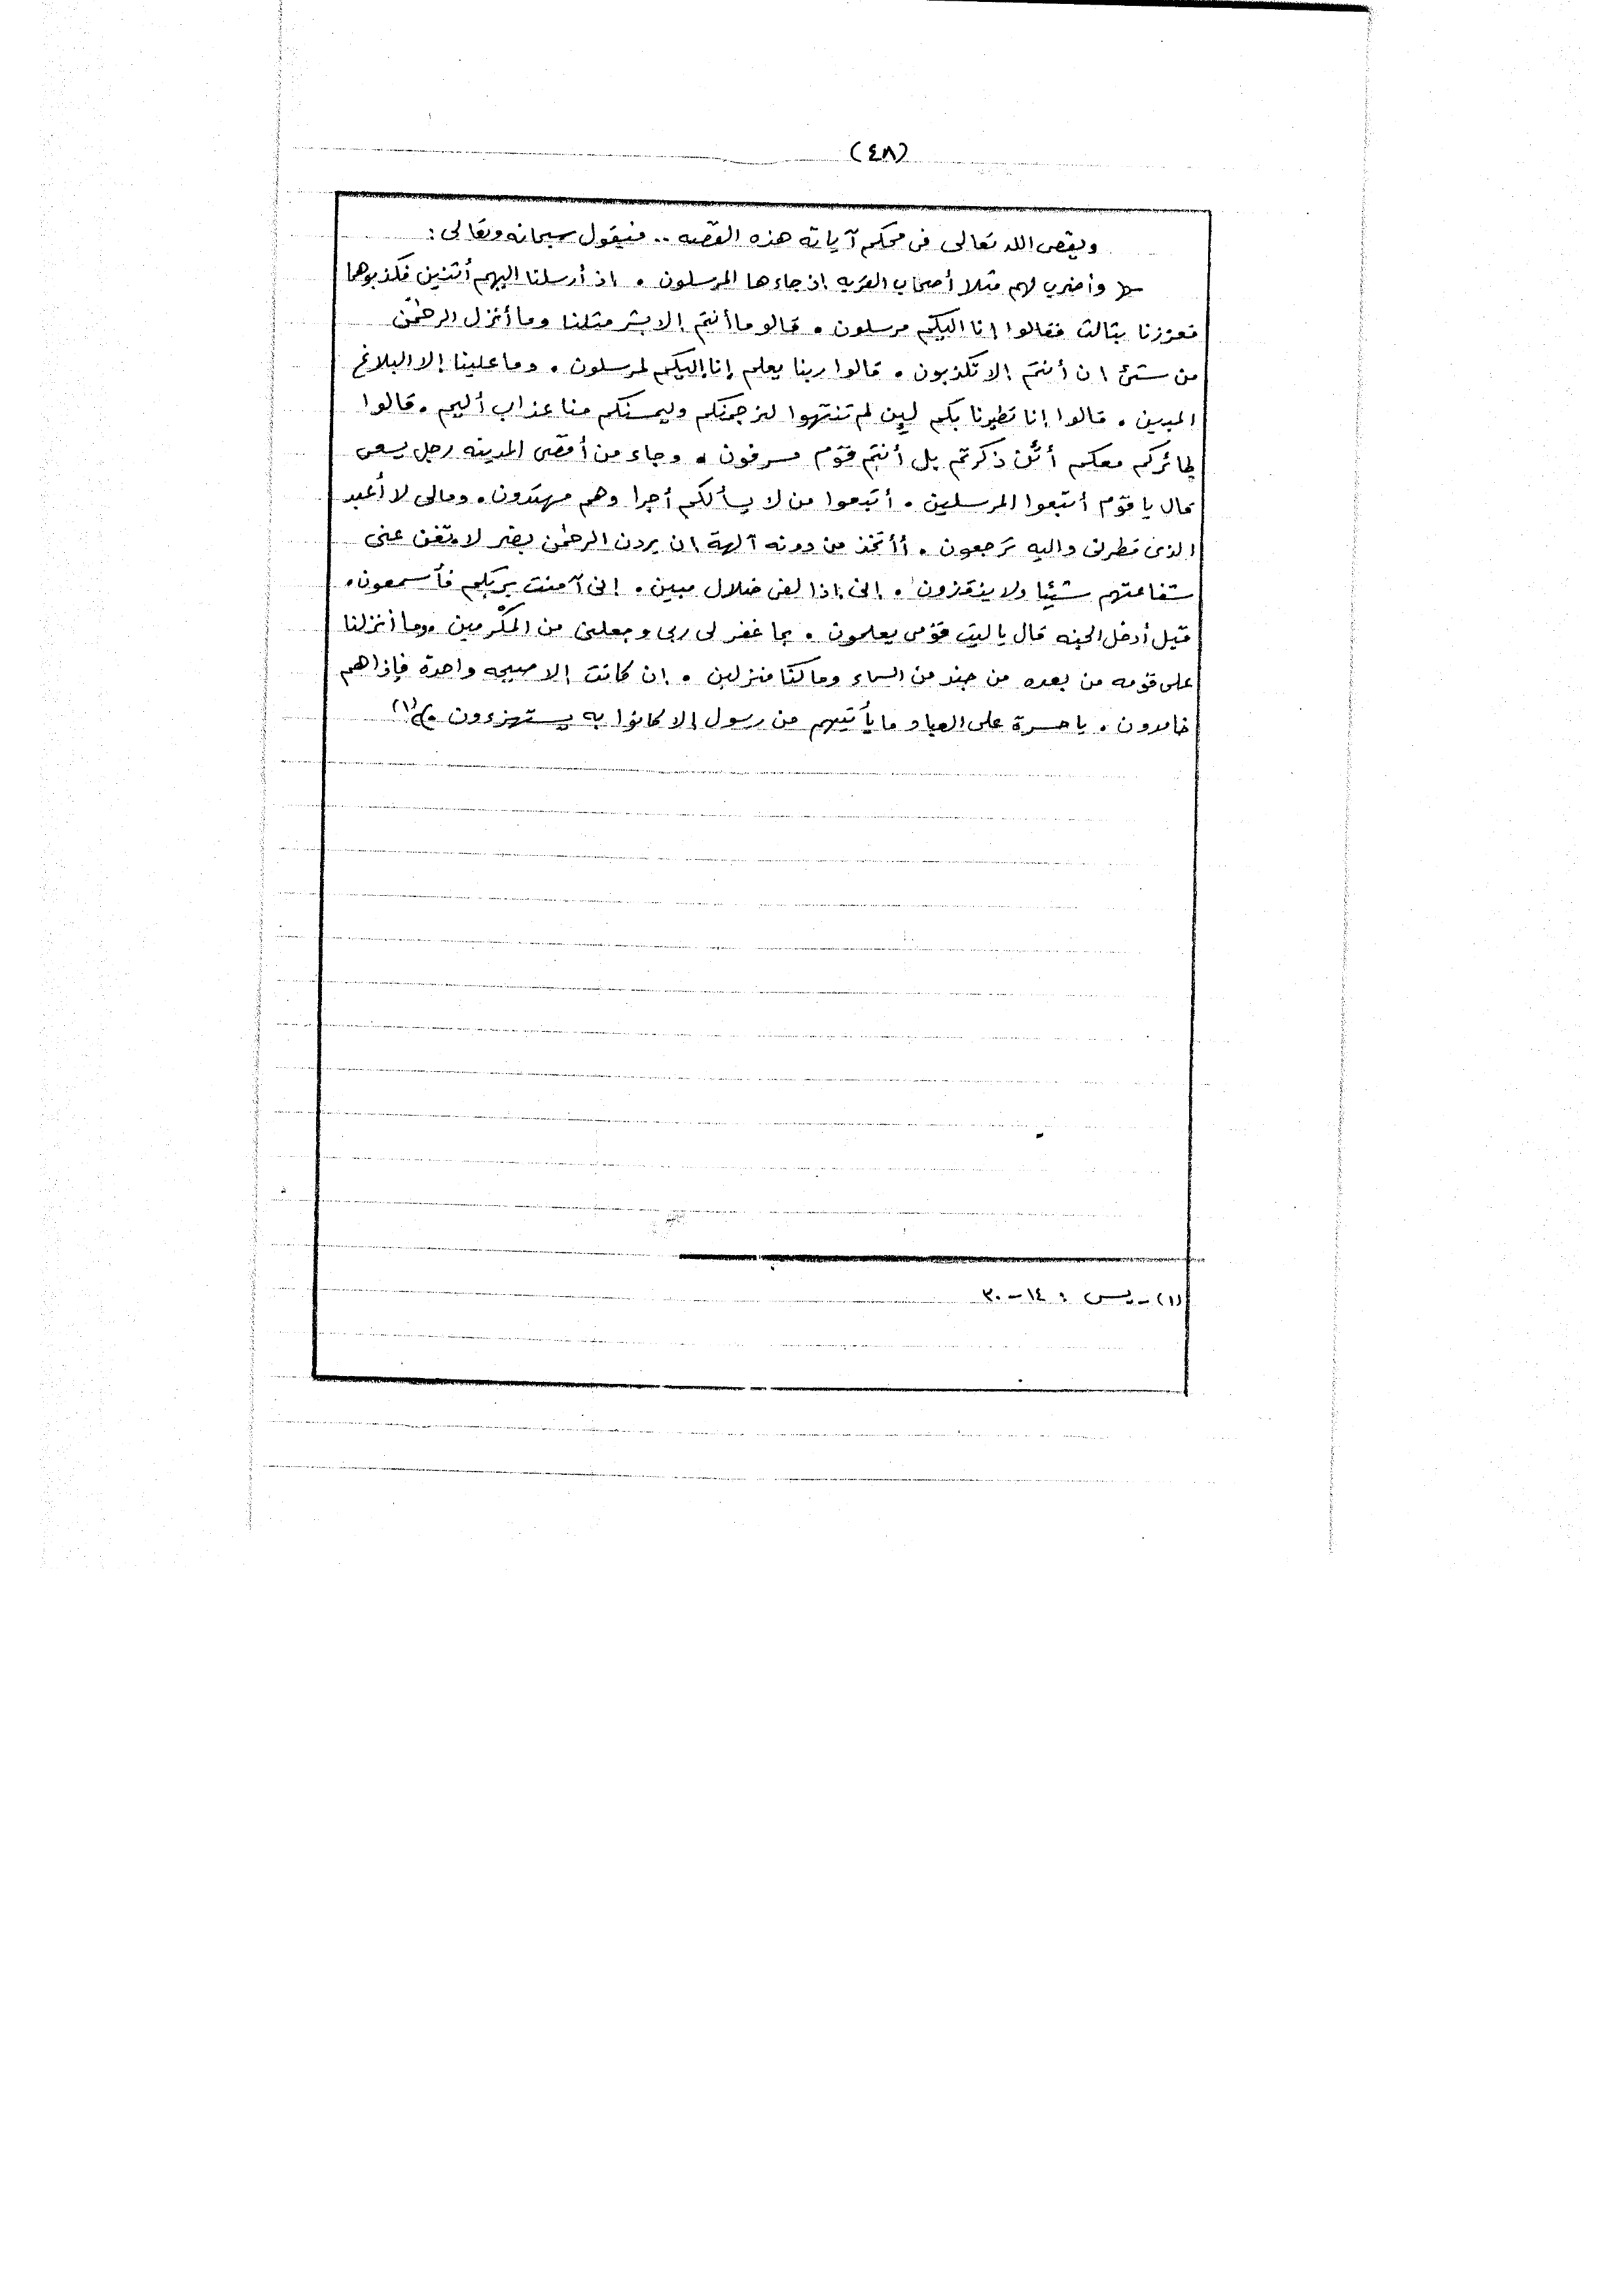 (٤٨)
ويقص الله تعالى فى محكم آياته هذه القصه .. فيقول سبحانه وتعالى :
وأضرب لهم مثلا أصحاب القريه اذ جاءها المرسلون . اذ أرسلنا اليهم أثنين فكذبوهما
فعززنا بثالث فقالوا إنا اليكم مرسلون . قالو ما أنتم إلا بشر مثلنا وما أنزل الرحمٰن
من شئ ان أنتم إلا تكذبون . قالوا ربنا يعلم إنا إليكم لمرسلون . وما علينا إلا البلاغ
المبين . قالوا إنا تطيرنا بكم لين لم تنتهوا لنرجمنكم وليمسنكم منا عذاب أليم . قالوا
طائركم معكم أئن ذكرتم بل أنتم قوم مسرفون . وجاء من أقصى المدينه رجل يسعى
قال يا قوم أتبعوا المرسلين . أتبعوا من لا يسألكم أجرا وهم مهتدون . ومالى لا أعبد
الذى فطرنى واليه ترجعون . أأتخذ من دونه آلهة ان يردن الرحمٰن بضر لا تغن عنى
شفاعتهم شيئا ولا ينقذون . إنى إذا لفى ضلال مبين . إنى آمنت بربكم فأسمعون .
قيل أدخل الجنه قال ياليت قومى يعلمون . بما غفر لى ربى وجعلنى من المكرمين . وما أنزلنا
على قومه من بعده من جند من السماء وما كنا منزلين . إن كانت إلا صيحه واحدة فإذا هم
خامدون . يا حسرة على العباد ما يأتيهم من رسول إلا كانوا به يستهزءون . (١)
(١) - يس : ١٤ - ٣٠